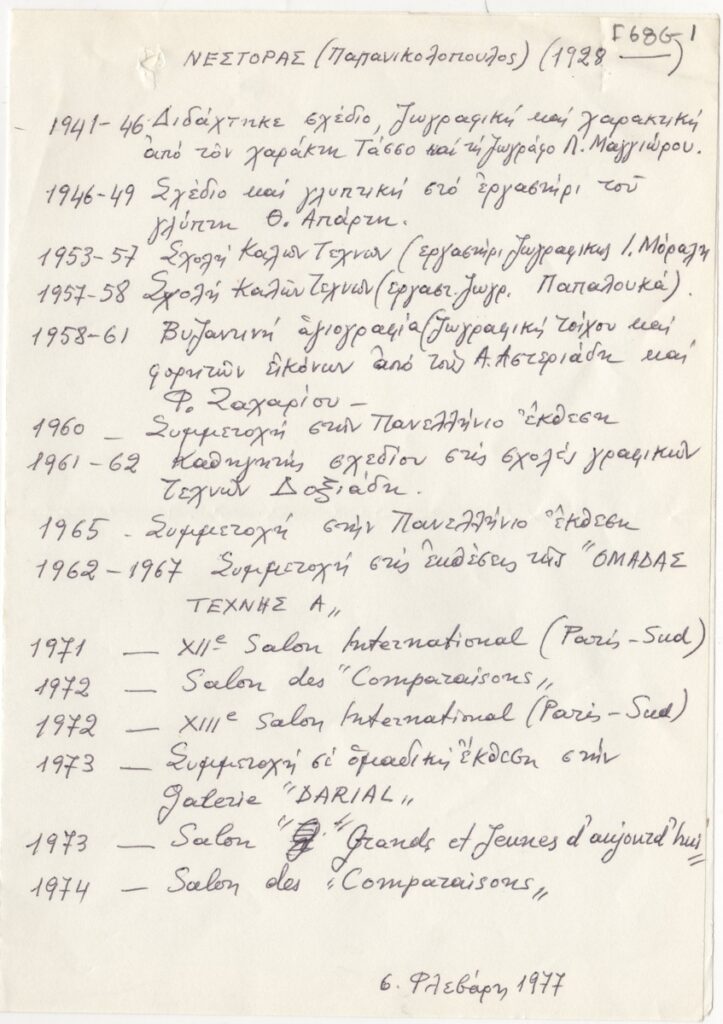 Γ68G1
ΝΕΣΤΟΡΑΣ (Παπανικολοπουλος) (1928 —)
1941-46 Διδάχτηκε σχέδιο, ζωγραφική και χαρακτική
ἀπό τόν χαράκτη Τάσσο και τή ζωγράφο Λ. Μαγγιώρου.
1946-49 Σχέδιο και γλυπτική στό ἐργαστήρι τοῦ
γλύπτη Θ. Απάρτη.
1953-57 Σχολή Καλῶν Τεχνων (ἐργαστήρι ζωγραφικης Ι. Μόραλη
1957-58 Σχολή Καλῶν Τεχνων (ἐργαστ. ζωγρ. Παπαλουκά).
1958-61 Βυζαντινή ἁγιογραφία (ζωγραφική τοίχου και
φορητῶν εἰκόνων ἀπό τούς Α. Αστεριάδη και
Φ. Ζαχαρίου —
1960 — Συμμετοχή στήν Πανελλήνιο ἔκθεση
1961-62 Καθηγητής σχεδίου στίς σχολές γραφικῶν
τεχνῶν Δοξιάδη.
1965 - Συμμετοχή στήν Πανελλήνιο ἔκθεση
1962-1967 Συμμετοχή στίς ἐκθέσεις τῆς "ΟΜΑΔΑΣ
ΤΕΧΝΗΣ Α„
1971 — XIIe Salon International (Paris-Sud)
1972 — Salon des "Comparaisons„
1972 — XIIIe Salon International (Paris-Sud)
1973 — Συμμετοχή σέ ὁμαδική ἔκθεση στήν
Galerie "DARIAL„
1973 — Salon "Grands et Jeunes d'aujourd'hui„
1974 — Salon des "Comparaisons„
6. Φλεβάρη 1977